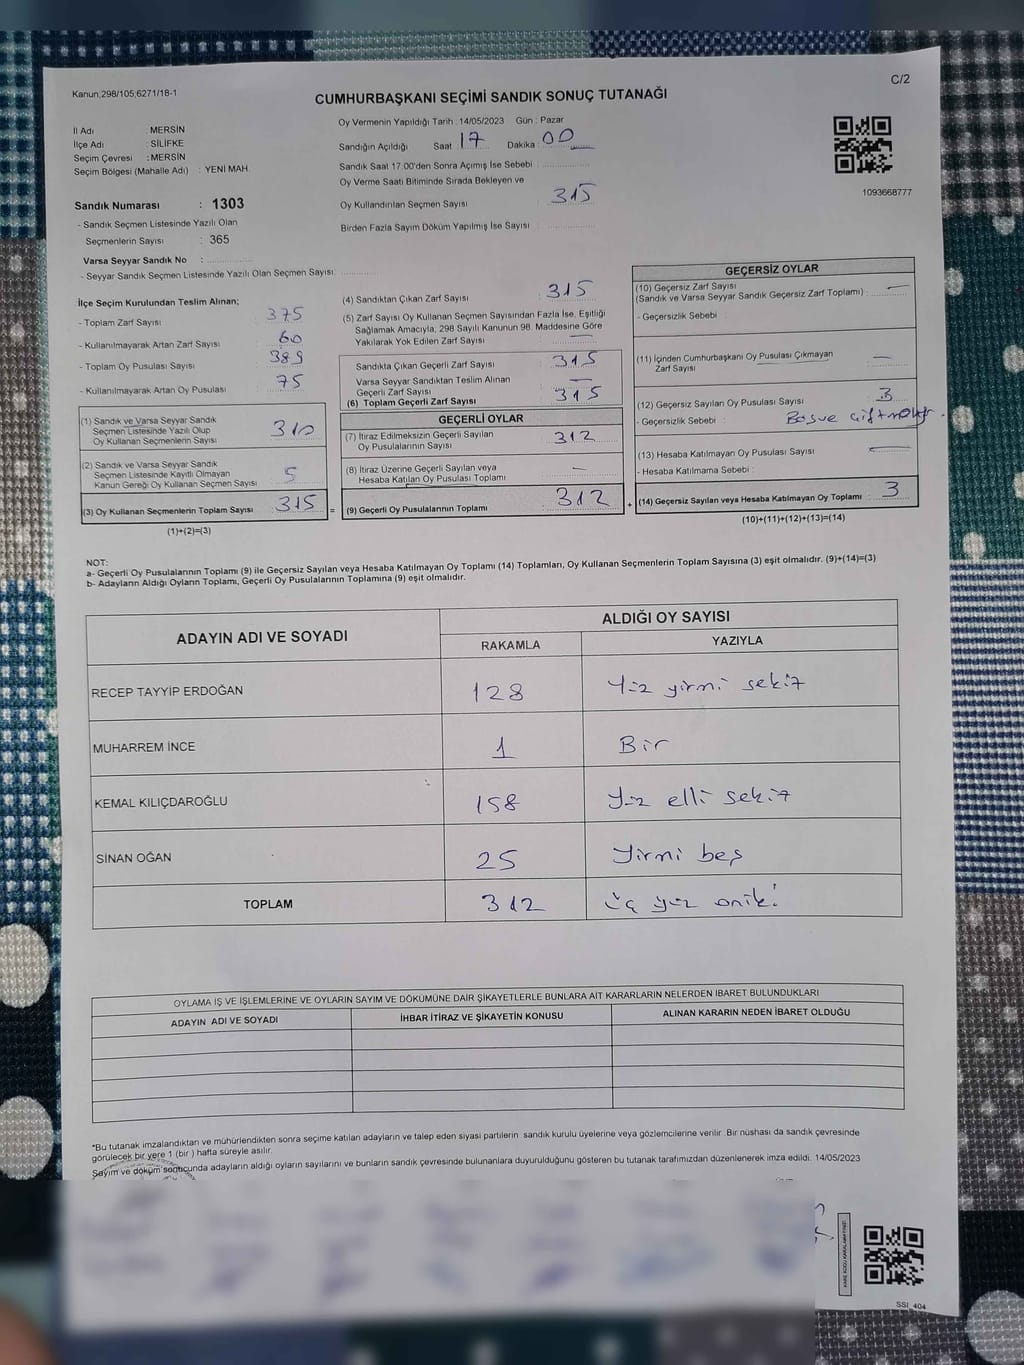 C/2
Kanun,298/105,6271/18-1
CUMHURBAŞKANI SEÇİMİ SANDIK SONUÇ TUTANAĞI
İl Adı : MERSİN
İlçe Adı : SİLİFKE
Seçim Çevresi : MERSİN
Seçim Bölgesi (Mahalle Adı) : YENİ MAH.
Oy Vermenin Yapıldığı Tarih : 14/05/2023 Gün : Pazar
Sandığın Açıldığı Saat 17 Dakika 00
Sandık Saat 17:00'den Sonra Açımış İse Sebebi :
Oy Verme Saati Bitiminde Sırada Bekleyen ve
Oy Kullandırılan Seçmen Sayısı : 315
Birden Fazla Sayım Döküm Yapılmış İse Sayısı :
1093668777
Sandık Numarası : 1303
- Sandık Seçmen Listesinde Yazılı Olan
Seçmenlerin Sayısı : 365
Varsa Seyyar Sandık No :
- Seyyar Sandık Seçmen Listesinde Yazılı Olan Seçmen Sayısı:
İlçe Seçim Kurulundan Teslim Alınan;
- Toplam Zarf Sayısı : 375
- Kullanılmayarak Artan Zarf Sayısı : 60
- Toplam Oy Pusulası Sayısı : 389
- Kullanılmayarak Artan Oy Pusulası : 75
(1) Sandık ve Varsa Seyyar Sandık
Seçmen Listesinde Yazılı Olup
Oy Kullanan Seçmenlerin Sayısı : 310
(2) Sandık ve Varsa Seyyar Sandık
Seçmen Listesinde Kayıtlı Olmayan
Kanun Gereği Oy Kullanan Seçmen Sayısı : 5
(3) Oy Kullanan Seçmenlerin Toplam Sayısı : 315 =
(1)+(2)=(3)
(4) Sandıktan Çıkan Zarf Sayısı : 315
(5) Zarf Sayısı Oy Kullanan Seçmen Sayısından Fazla İse, Eşitliği
Sağlamak Amacıyla; 298 Sayılı Kanunun 98. Maddesine Göre
Yakılarak Yok Edilen Zarf Sayısı : —
Sandıkta Çıkan Geçerli Zarf Sayısı : 315
Varsa Seyyar Sandıktan Teslim Alınan
Geçerli Zarf Sayısı : —
(6) Toplam Geçerli Zarf Sayısı : 315
GEÇERLİ OYLAR
(7) İtiraz Edilmeksizin Geçerli Sayılan
Oy Pusulalarının Sayısı : 312
(8) İtiraz Üzerine Geçerli Sayılan veya
Hesaba Katılan Oy Pusulası Toplamı : —
(9) Geçerli Oy Pusulalarının Toplamı : 312 +
GEÇERSİZ OYLAR
(10) Geçersiz Zarf Sayısı
(Sandık ve Varsa Seyyar Sandık Geçersiz Zarf Toplamı) : —
- Geçersizlik Sebebi :
(11) İçinden Cumhurbaşkanı Oy Pusulası Çıkmayan
Zarf Sayısı : —
(12) Geçersiz Sayılan Oy Pusulası Sayısı : 3
- Geçersizlik Sebebi : Boş ve çift
(13) Hesaba Katılmayan Oy Pusulası Sayısı : —
- Hesaba Katılmama Sebebi :
(14) Geçersiz Sayılan veya Hesaba Katılmayan Oy Toplamı : 3
(10)+(11)+(12)+(13)=(14)
NOT:
a- Geçerli Oy Pusulalarının Toplamı (9) ile Geçersiz Sayılan veya Hesaba Katılmayan Oy Toplamı (14) Toplamları, Oy Kullanan Seçmenlerin Toplam Sayısına (3) eşit olmalıdır. (9)+(14)=(3)
b- Adayların Aldığı Oyların Toplamı, Geçerli Oy Pusulalarının Toplamına (9) eşit olmalıdır.
ADAYIN ADI VE SOYADI
ALDIĞI OY SAYISI
RAKAMLA YAZIYLA
RECEP TAYYİP ERDOĞAN 128 Yüz yirmi sekiz
MUHARREM İNCE 1 Bir
KEMAL KILIÇDAROĞLU 158 Yüz elli sekiz
SİNAN OĞAN 25 Yirmi beş
TOPLAM 312 üç yüz oniki
OYLAMA İŞ VE İŞLEMLERİNE VE OYLARIN SAYIM VE DÖKÜMÜNE DAİR ŞİKAYETLERLE BUNLARA AİT KARARLARIN NELERDEN İBARET BULUNDUKLARI
ADAYIN ADI VE SOYADI İHBAR İTİRAZ VE ŞİKAYETİN KONUSU ALINAN KARARIN NEDEN İBARET OLDUĞU
*Bu tutanak imzalandıktan ve mühürlendikten sonra seçime katılan adayların ve talep eden siyasi partilerin sandık kurulu üyelerine veya gözlemcilerine verilir. Bir nüshası da sandık çevresinde
görülecek bir yere 1 (bir ) hafta süreyle asılır.
Sayım ve döküm sonucunda adayların aldığı oyların sayılarını ve bunların sandık çevresinde bulunanlara duyurulduğunu gösteren bu tutanak tarafımızdan düzenlenerek imza edildi. 14/05/2023
KARE KODU KARALAMAYINIZ!
SSI_404